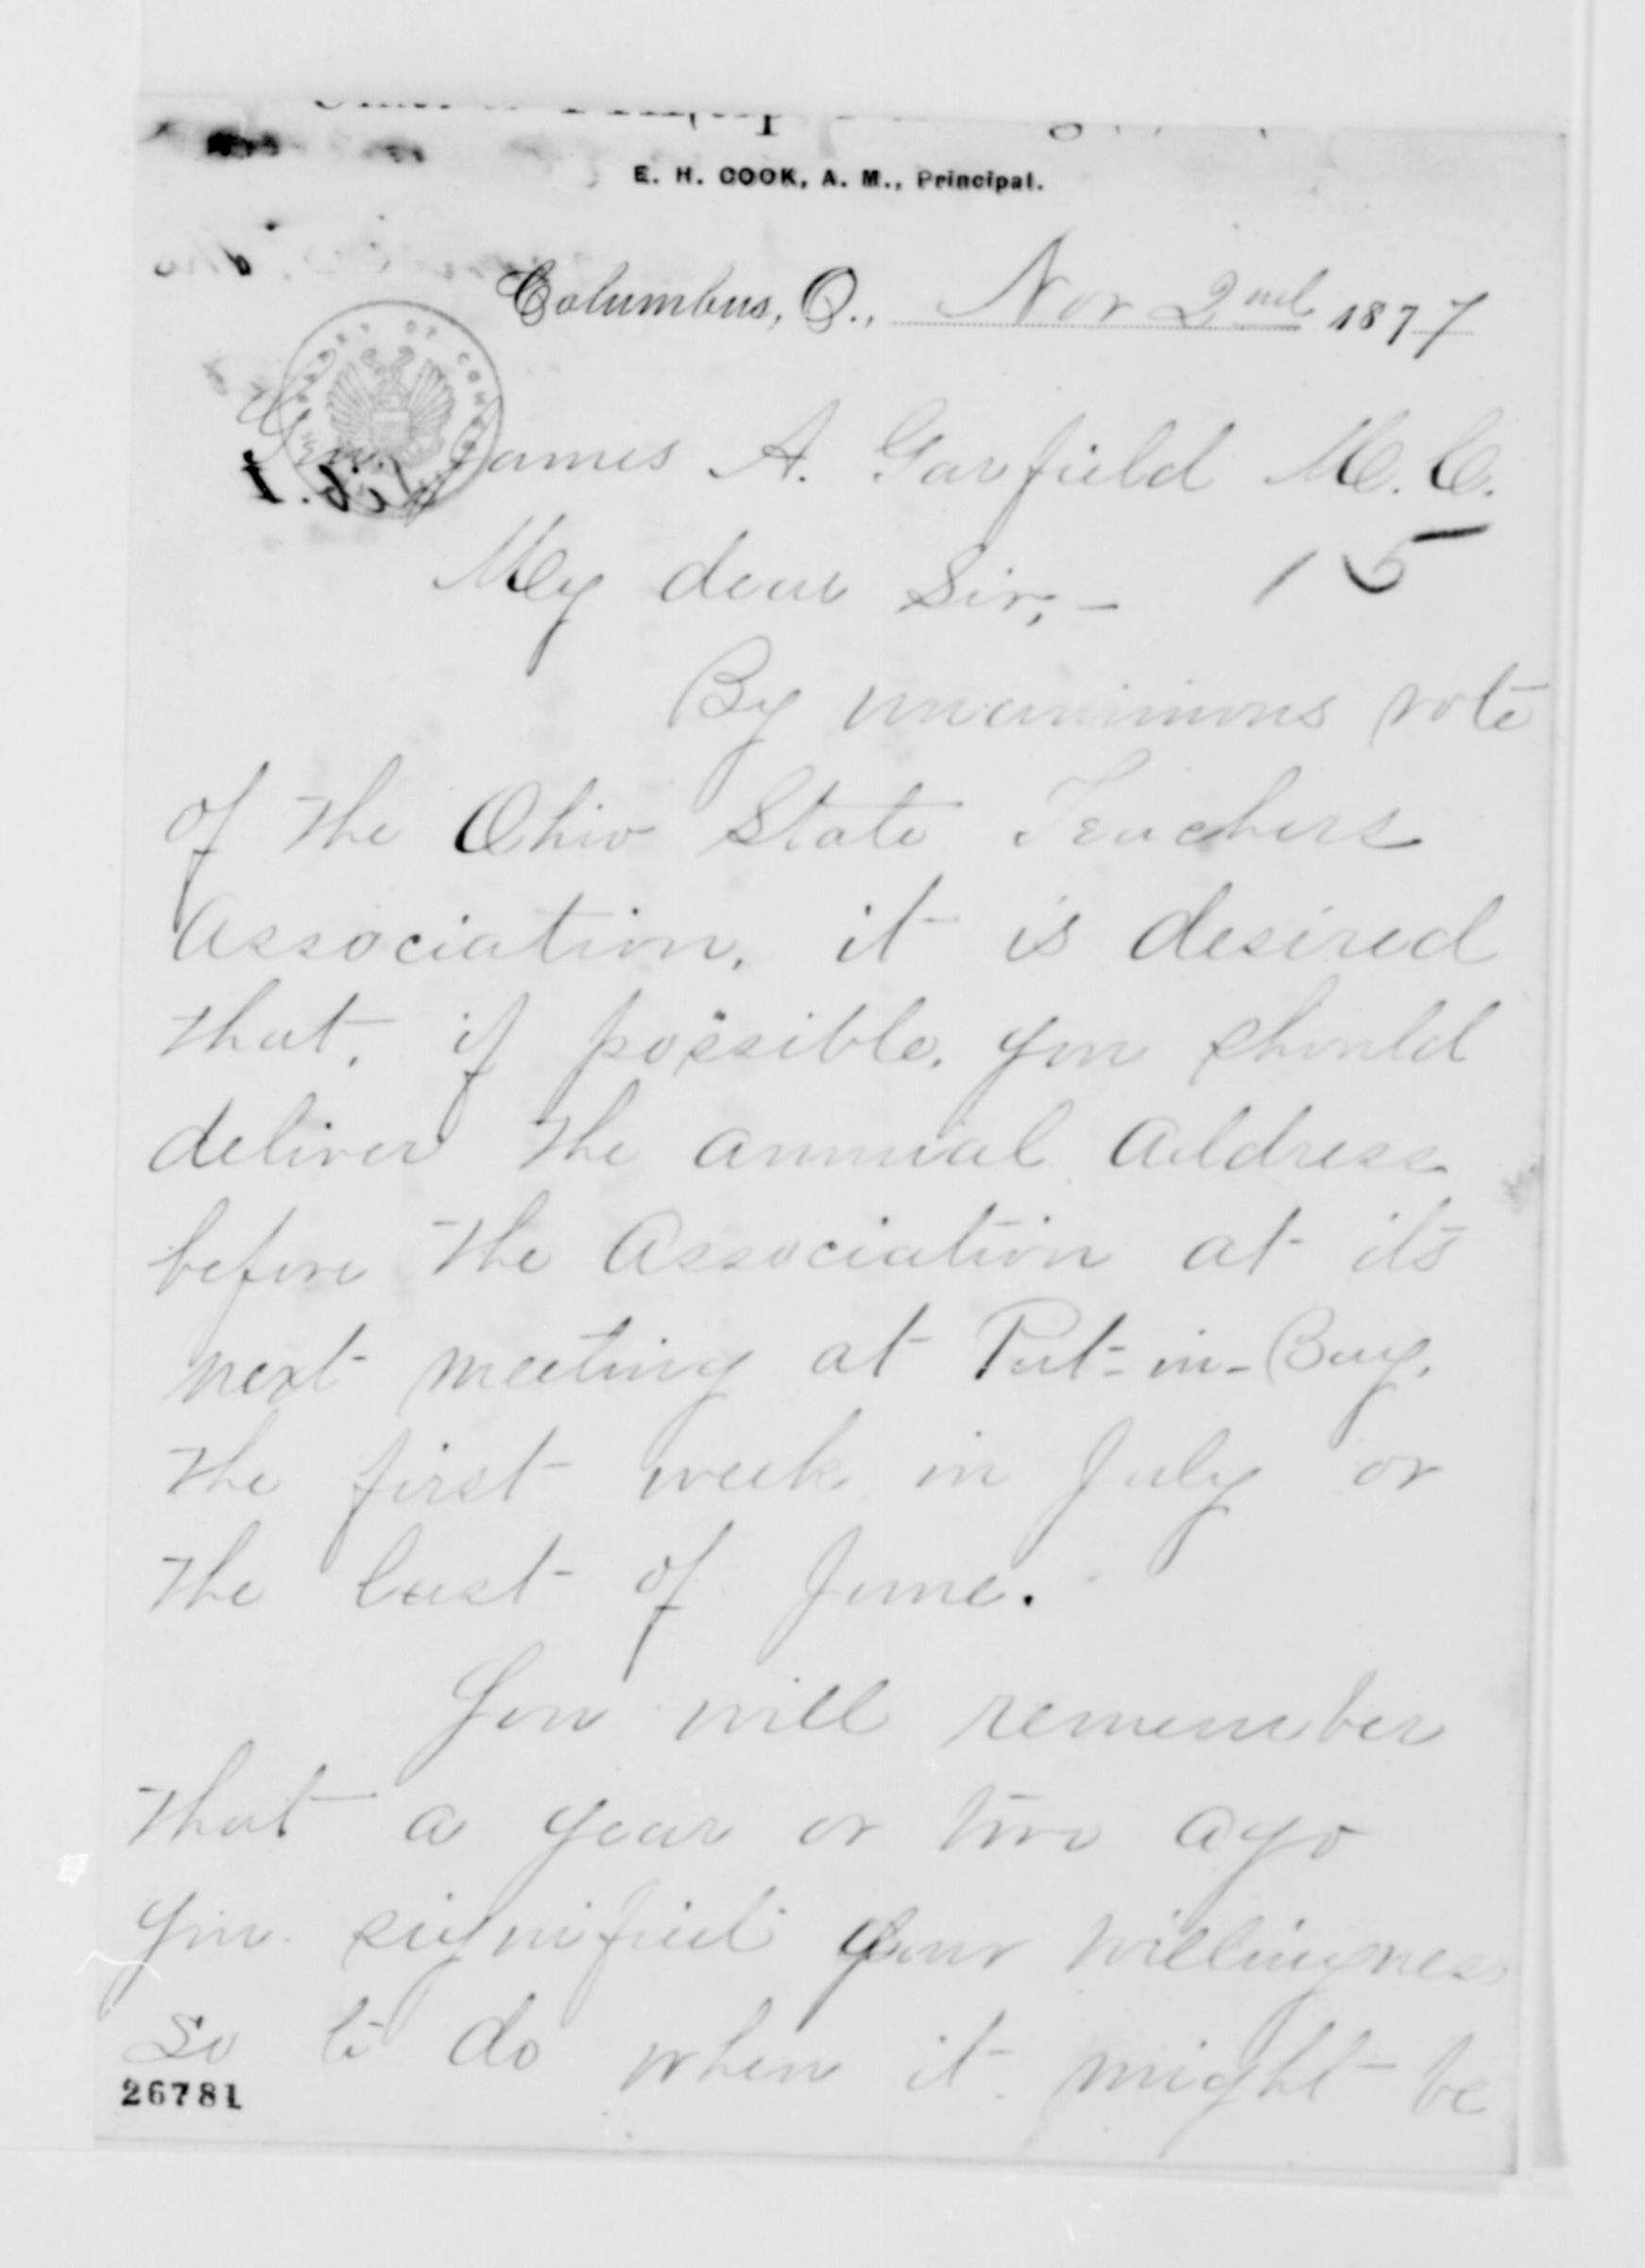 E. H. COOK, A. M., Principal.
Columbus, O., Nov 2nd 1877
Gen. James A. Garfield M. C.
My dear Sir,- 15
By unanimous vote
of the Ohio State Teachers
Association, it is desired
that, if possible, you should
deliver the annual Address
before the Association at its
next meeting at Put-in-Bay,
the first week in July or
the last of June.
You will remember
that a year or two ago
you signified your willingness
so to do when it might be
26781